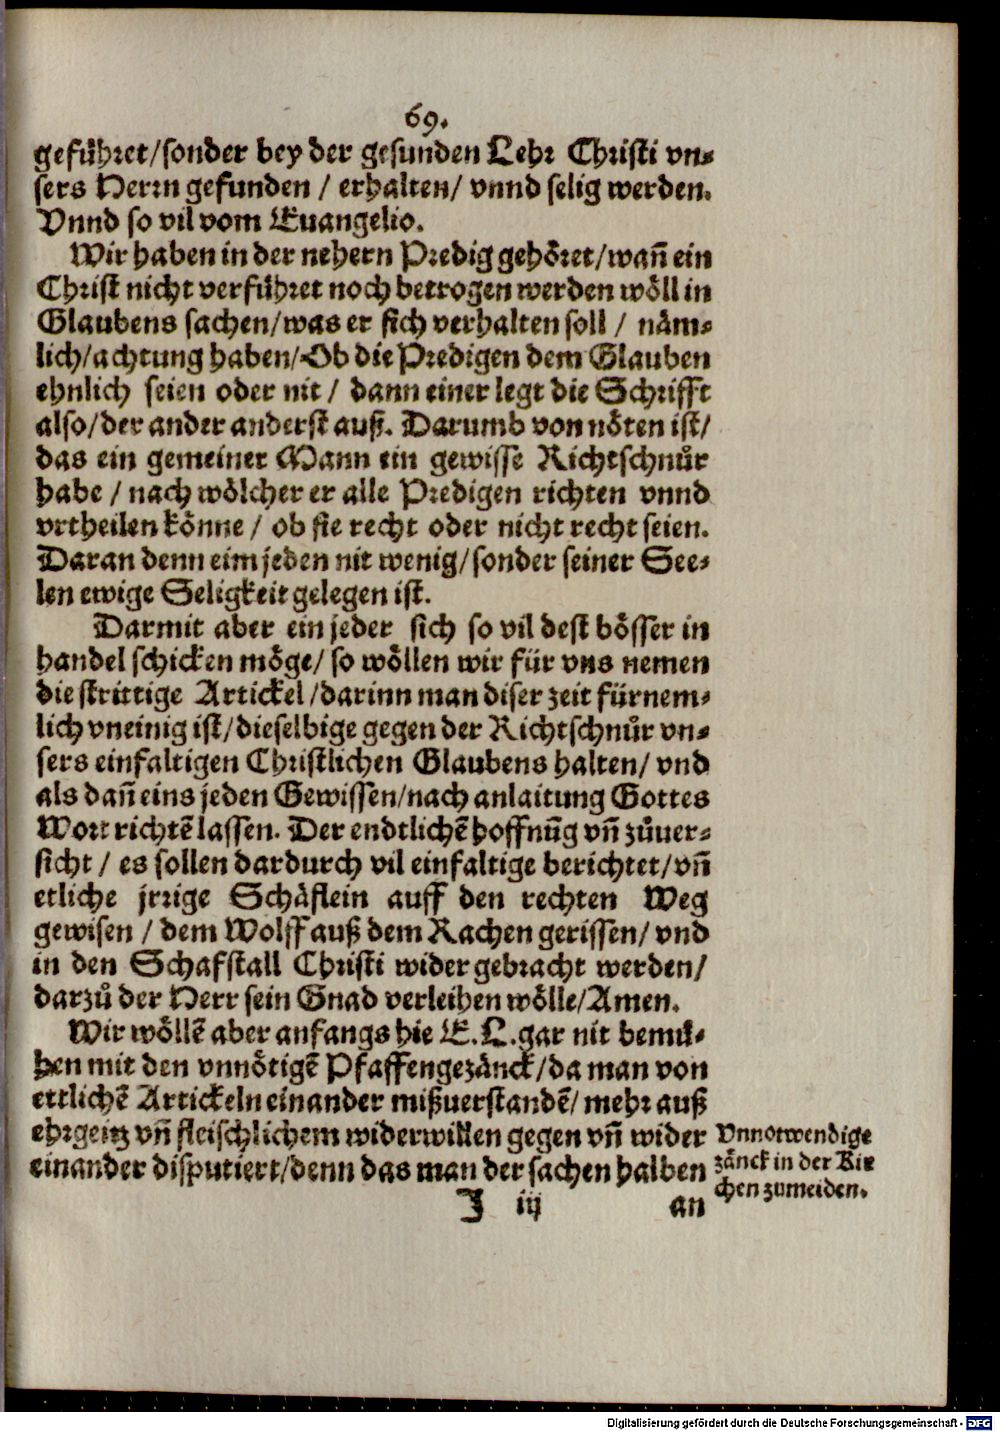 69.
geführet/sonder bey der gesunden Lehr Christi vn⸗
sers Herrn gefunden / erhalten/ vnnd selig werden.
Vnnd so vil vom Euangelio.
Wir haben in der nehern Predig gehöret/wañ ein
Christ nicht verführet noch betrogen werden wöll in
Glaubens sachen/was er sich verhalten soll / näm⸗
lich/achtung haben/Ob die Predigen dem Glauben
ehnlich seien oder nit / dann einer legt die Schrifft
also/der ander anderst auß. Darumb von nöten ist/
das ein gemeiner Mann ein gewisse Richtschnůr
habe / nach wölcher er alle Predigen richten vnnd
vrtheilen könne / ob sie recht oder nicht recht seien.
Daran denn eim jeden nit wenig/sonder seiner See⸗
len ewige Seligkeit gelegen ist.
Darmit aber ein jeder sich so vil dest bösser in
handel schicken möge/ so wöllen wir für vns nemen
die strittige Artickel/darinn man diser zeit fürnem⸗
lich vneinig ist/dieselbige gegen der Richtschnůr vn⸗
sers einfaltigen Christlichen Glaubens halten/ vnd
als dañ eins jeden Gewissen/nach anlaitung Gottes
Wort richtẽ lassen. Der endtlichẽ hoffnũg vñ zůuer⸗
sicht / es sollen dardurch vil einfaltige berichtet/vñ
etliche jrrige Schäflein auff den rechten Weg
gewisen / dem Wolff auß dem Rachen gerissen/ vnd
in den Schafstall Christi wider gebracht werden/
darzů der Herr sein Gnad verleihen wölle/Amen.
Wir wöllẽ aber anfangs hie E.L.gar nit bemü⸗
hen mit den vnnötigẽ Pfaffengezänck/da man von
ettlichẽ Artickeln einander mißuerstandẽ/ mehr auß
ehrgeitz vñ fleischlichem widerwillen gegen vñ wider
einander disputiert/denn das man der sachen halben
Vnnotwendige
zänck in der Kir
chen zumeiden.
J iij an
Digitalisierung gefördert durch die Deutsche Forschungsgemeinschaft - DFG